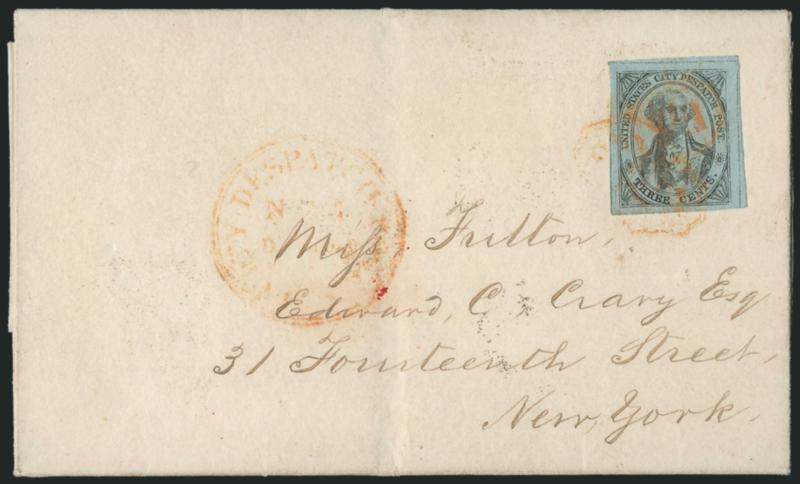 UNITED STATES CITY DESPATCH POST.
THREE CENTS.
CITY DESPATCH
Miss Fulton,
Edward, C, Crary Esq
31 Fourteenth Street,
New, York.